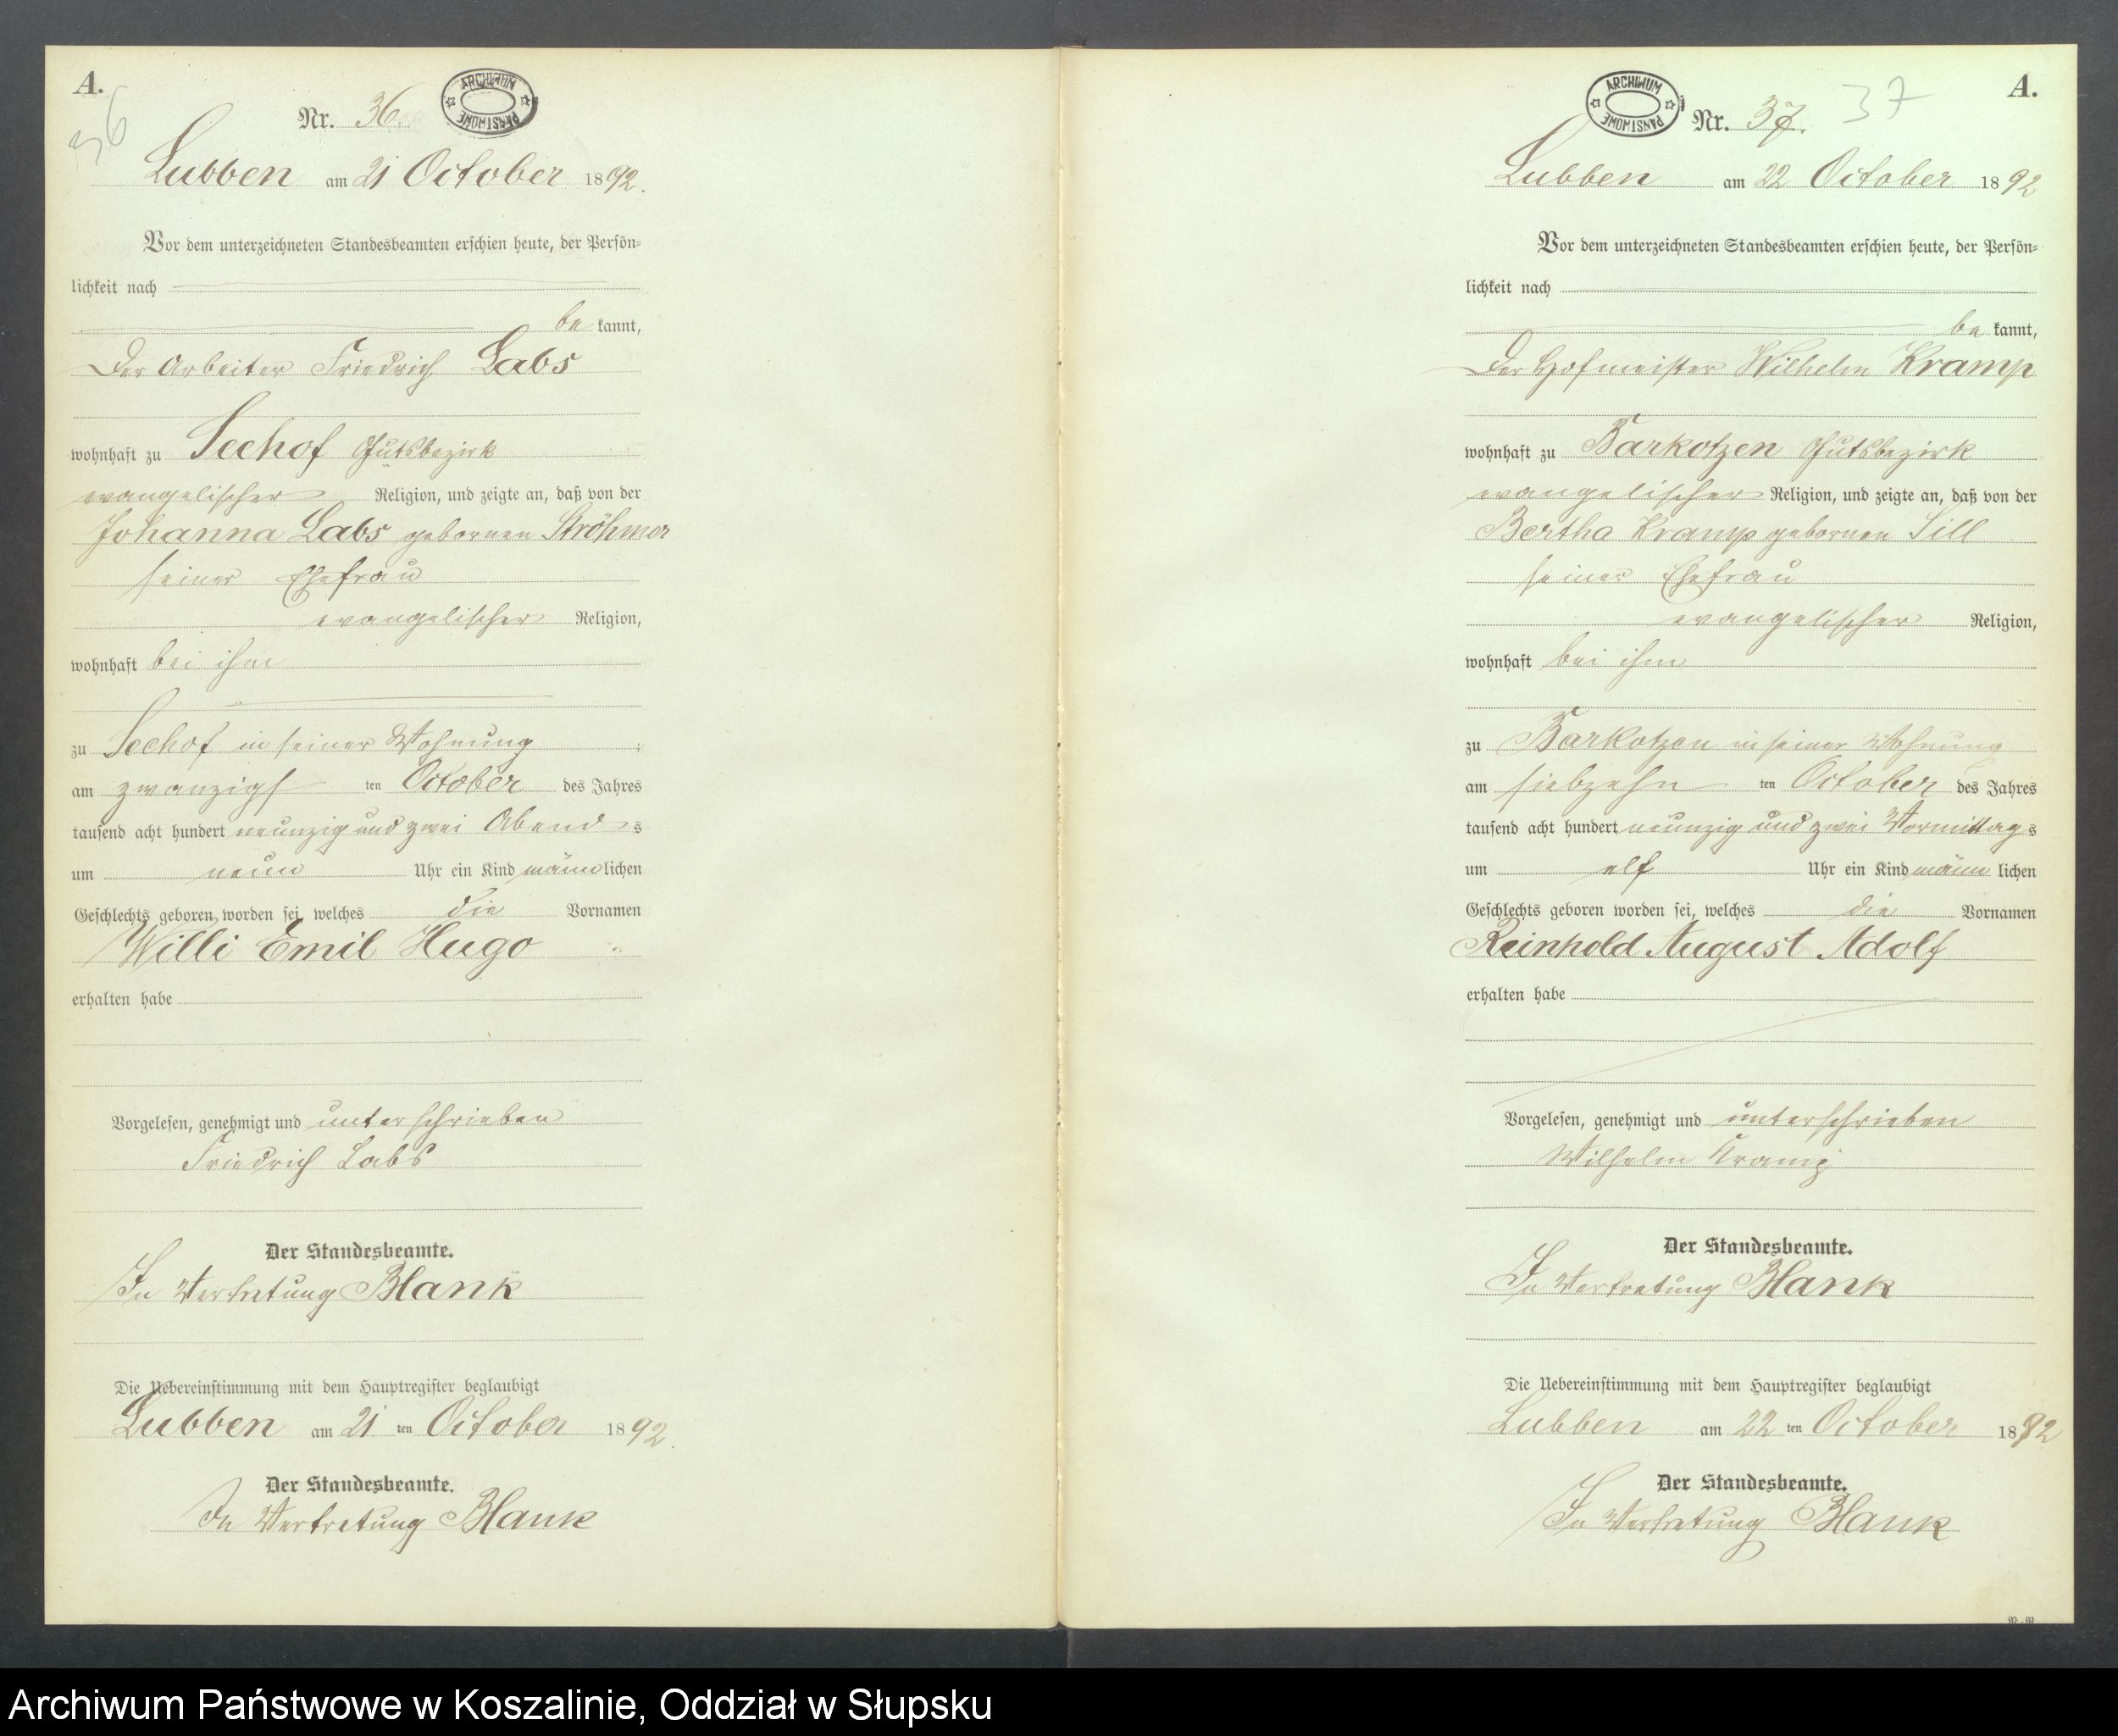 A.
36
Nr. 36.
ARCHIWUM PAŃSTWOWE
Lubben am 21 October 1892.
Vor dem unterzeichneten Standesbeamten erschien heute, der Persön-
lichkeit nach
be kannt,
Der Arbeiter Friedrich Labs
wohnhaft zu Seehof Gutsbezirk
evangelischer Religion, und zeigte an, daß von der
Johanna Labs gebornen Ströhmer
seiner Ehefrau
evangelischer Religion,
wohnhaft bei ihm
zu Seehof in seiner Wohnung
am zwanzigs ten October des Jahres
tausend acht hundert neunzig und zwei Abend s
um neun Uhr ein Kind männ lichen
Geschlechts geboren worden sei, welches die Vornamen
Willi Emil Hugo
erhalten habe
Vorgelesen, genehmigt und unterschrieben
Friedrich Labs
Der Standesbeamte.
In Vertretung Blank
Die Uebereinstimmung mit dem Hauptregister beglaubigt
Lubben am 21 ten October 1892.
Der Standesbeamte.
In Vertretung Blank
A.
37
ARCHIWUM PAŃSTWOWE
Nr. 37.
Lubben am 22 October 1892
Vor dem unterzeichneten Standesbeamten erschien heute, der Persön-
lichkeit nach
be kannt,
Der Hofmeister Wilhelm Kramp
wohnhaft zu Barkotzen Gutsbezirk
evangelischer Religion, und zeigte an, daß von der
Bertha Kramp gebornen Sill
seiner Ehefrau
evangelischer Religion,
wohnhaft bei ihm
zu Barkotzen in seiner Wohnung
am siebzehn ten October des Jahres
tausend acht hundert neunzig und zwei Vormittag s
um elf Uhr ein Kind männ lichen
Geschlechts geboren worden sei, welches die Vornamen
Reinhold August Adolf
erhalten habe
Vorgelesen, genehmigt und unterschrieben
Wilhelm Kramp
Der Standesbeamte.
In Vertretung Blank
Die Uebereinstimmung mit dem Hauptregister beglaubigt
Lubben am 22 ten October 1892
Der Standesbeamte.
In Vertretung Blank
Archiwum Państwowe w Koszalinie, Oddział w Słupsku